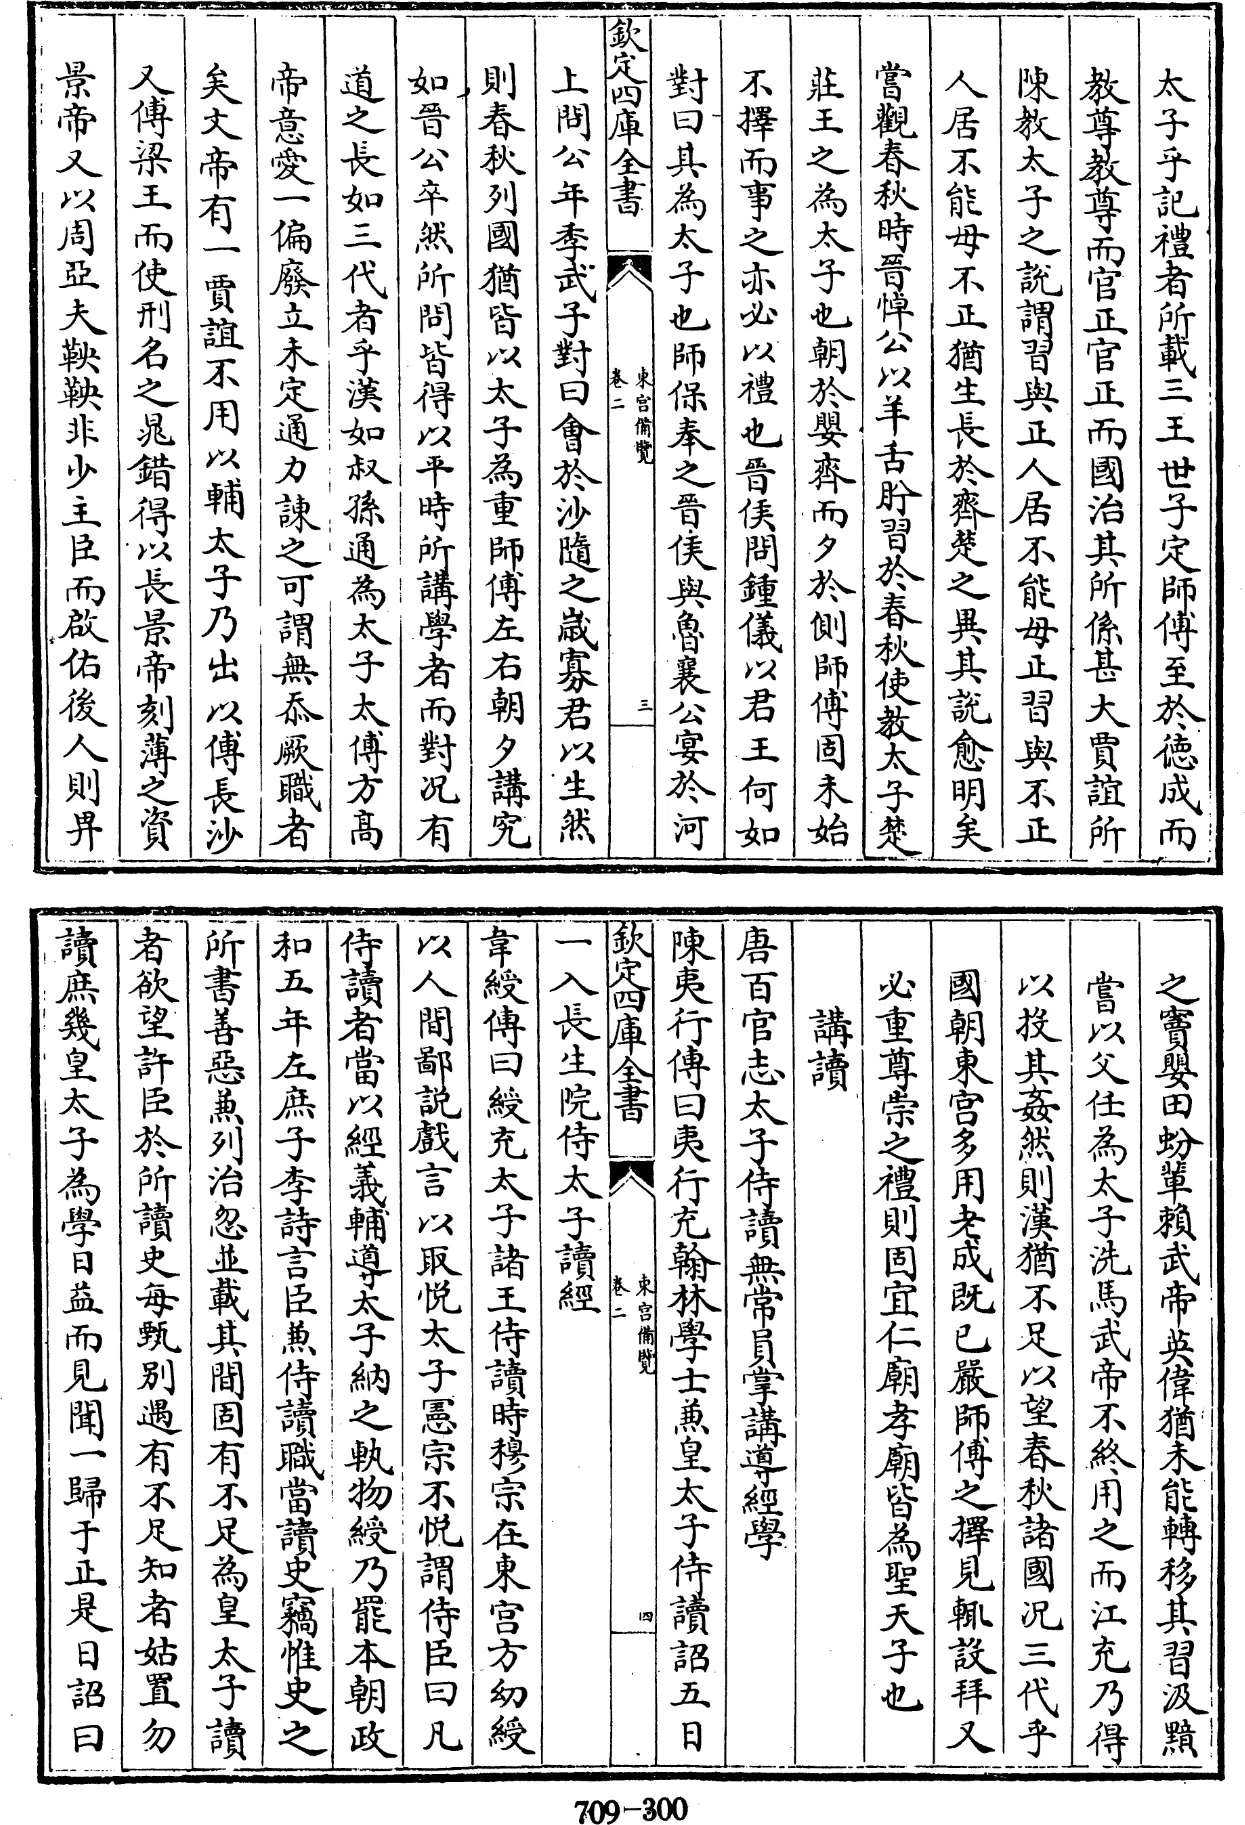 太子乎記禮者所載三王世子定師傅至於徳成而
教尊教尊而官正官正而國治其所係甚大賈誼所
陳教太子之說謂習與正人居不能毋正習與不正
人居不能毋不正猶生長於齊楚之異其說愈明矣
嘗觀春秋時晉悼公以羊舌肸習於春秋使教太子楚
莊王之為太子也朝於嬰齊而夕於側師傅固未始
不擇而事之亦必以禮也晉侯問鍾儀以君王何如
對曰其為太子也師保奉之晉侯與魯襄公宴於河
欽定四庫全書
東宮備覽
卷二
三
上問公年季武子對曰會於沙隨之歳寡君以生然
則春秋列國猶皆以太子為重師傅左右朝夕講究
如晉公卒然所問皆得以平時所講學者而對况有
道之長如三代者乎漢如叔孫通為太子太傅方髙
帝意愛一偏廢立未定通力諫之可謂無忝厥職者
矣文帝有一賈誼不用以輔太子乃出以傅長沙
又傅梁王而使刑名之晁錯得以長景帝刻薄之資
景帝又以周亞夫鞅鞅非少主臣而啟佑後人則畀
之竇嬰田蚡輩賴武帝英偉猶未能轉移其習汲黯
嘗以父任為太子洗馬武帝不終用之而江充乃得
以投其姦然則漢猶不足以望春秋諸國况三代乎
國朝東宮多用老成既已嚴師傅之擇見輒設拜又
必重尊崇之禮則固宜仁廟孝廟皆為聖天子也
講讀
唐百官志太子侍讀無常員掌講導經學
陳夷行傳曰夷行充翰林學士兼皇太子侍讀詔五日
欽定四庫全書
東宮備覽
卷二
四
一入長生院侍太子讀經
韋綬傳曰綬充太子諸王侍讀時穆宗在東宮方幼綬
以人間鄙説戲言以取悦太子憲宗不悦謂侍臣曰凡
侍讀者當以經義輔導太子納之軌物綬乃罷本朝政
和五年左庶子李詩言臣兼侍讀職當讀史竊惟史之
所書善惡兼列治忽並載其間固有不足為皇太子讀
者欲望許臣於所讀史每甄別遇有不足知者姑置勿
讀庶幾皇太子為學日益而見聞一歸于正是日詔曰
709-300